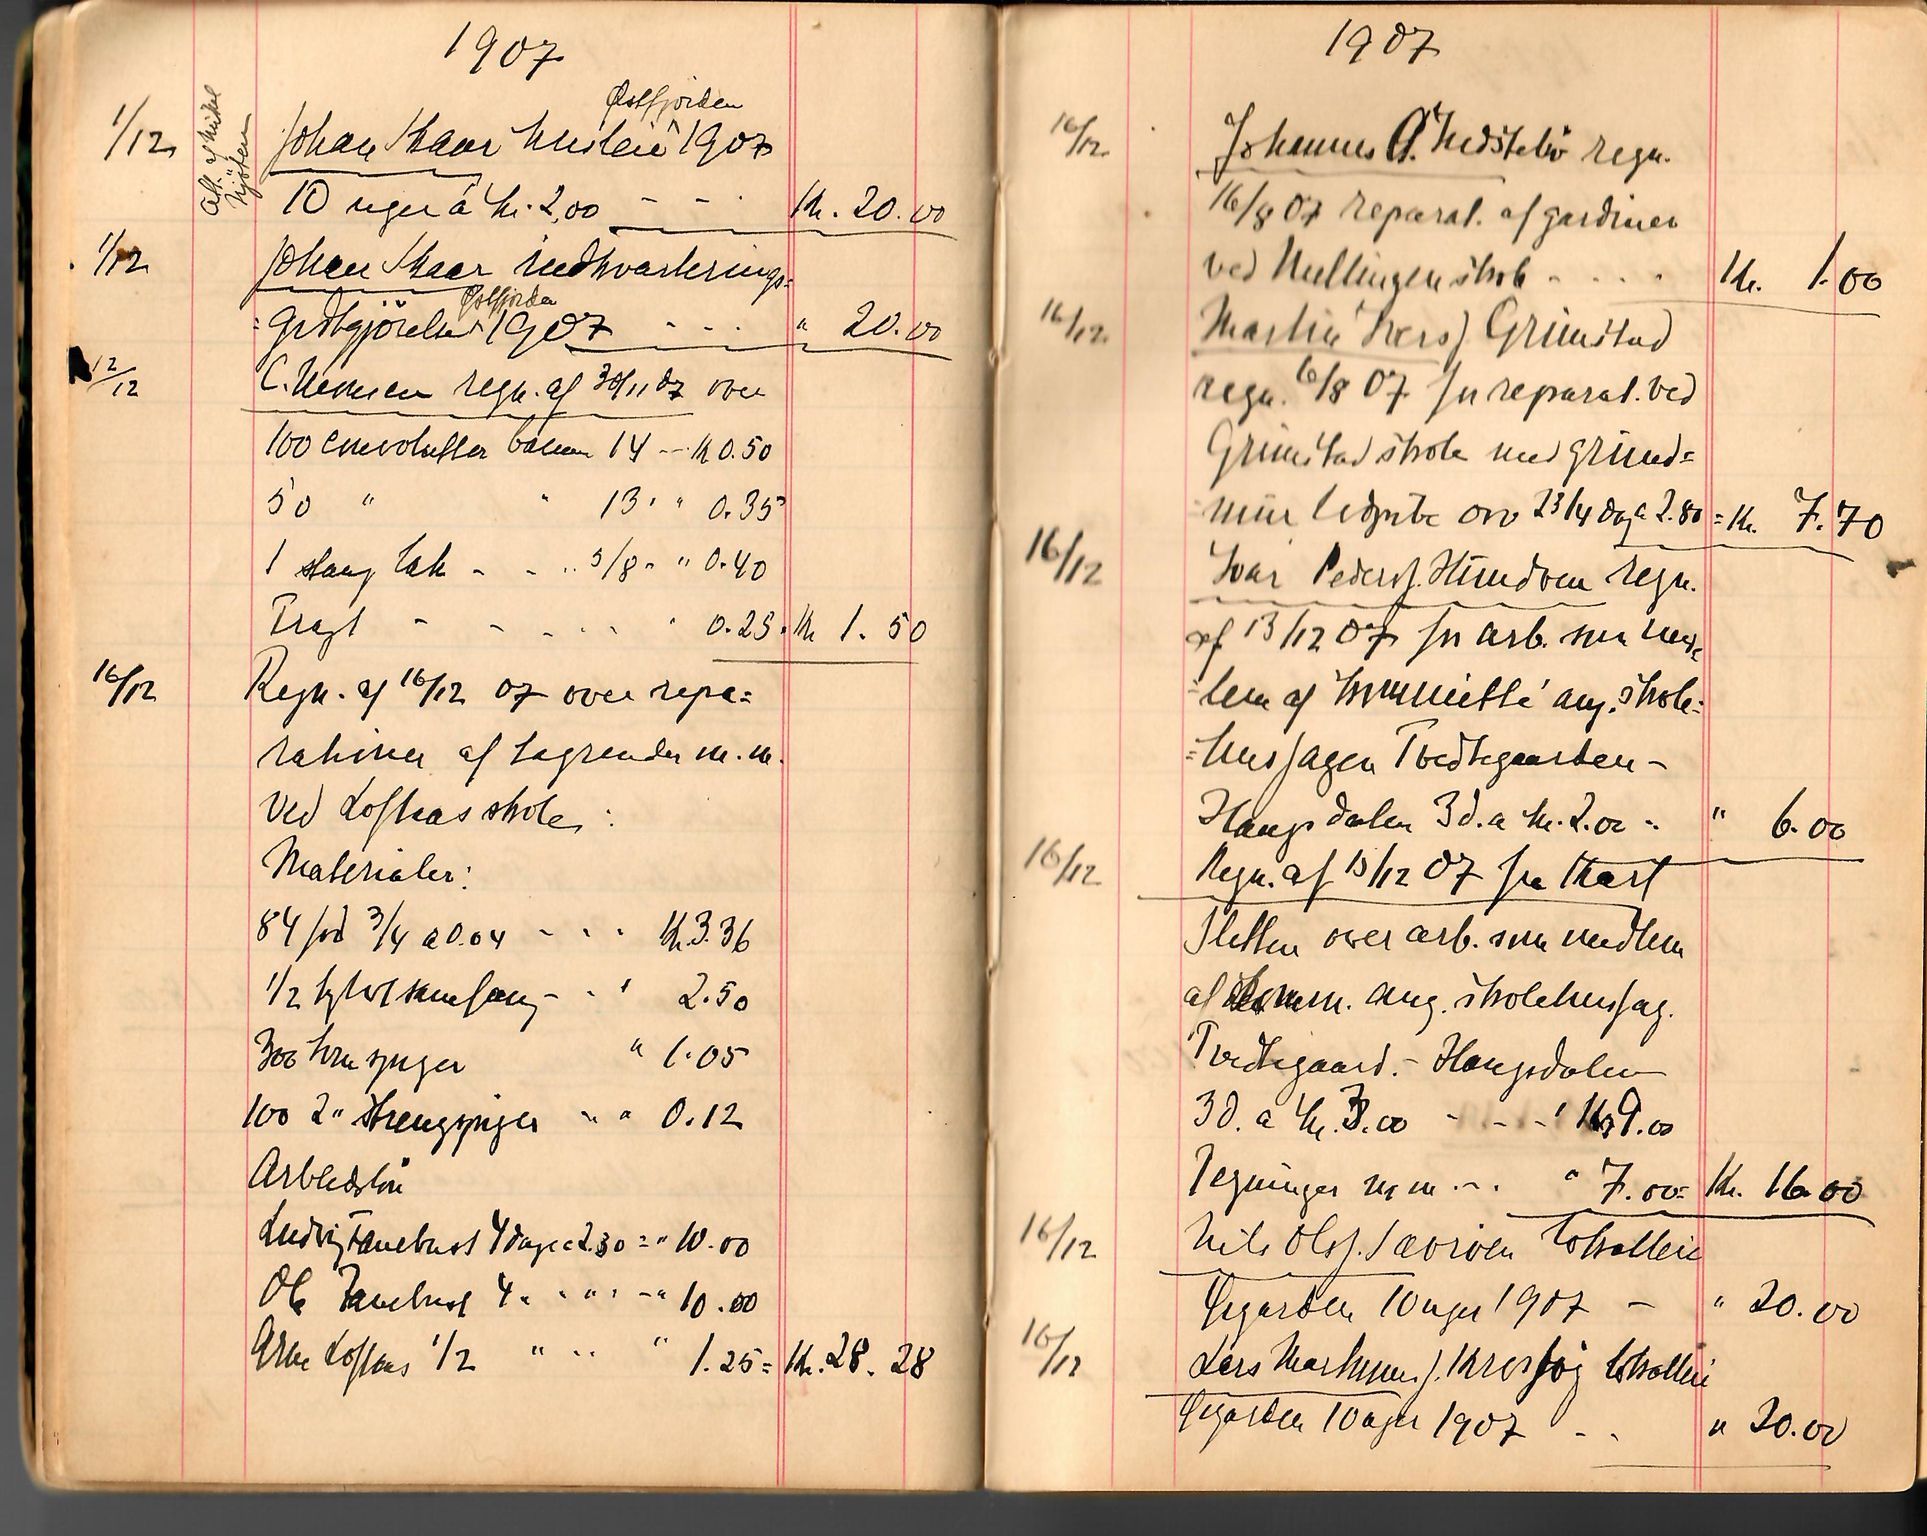 1907
Østfjorden
1/12 Johan Skaar husleie 1907
Att. af Mikkel
Njøsten
10 uger á kr. 2,00 - - - Kr. 20.00
1/12 Johan Skaar indkvarterings=
Østfjorden
=godtgjörelse 1907 - - - " 20.00
12/12 C. regn. af 30/11 07 over
100 convolutter 14 -- Kr 0.50
50 " " 13 " " 0.35
1 stang lak - - .. 5/8 " " 0.40
Fragt - - - - - 0.25 = Kr 1.50
16/12 Regn. af 16/12 07 over repa=
rationer af tagrender m.m.
ved Loftaas skole:
Materialer:
84 fod 3/4 a 0.04 - - - Kr. 3.36
1/2 - - " 2.50
300 spiger " 1.05
100 2" spiger " " 0.12
Arbeidslön
Ludvig Tanebust 4 dage a 2.50 = " 10.00
Ole Tanebust 4 " " " " - " 10.00
Arne Loftaas 1/2 " " " 1.25 = Kr. 28.28
1907
16/12 Johannes A. Hedstebö regn.
16/8 07 reparat. af gardiner
ved skole - - - - Kr. 1.00
16/12. Martin Ivers. Grimstad
regn. 6/8 07 for reparat. ved
Grimstad skole med grund=
=mur o.v. 2 3/4 dag a 2.80 = Kr. 7.70
16/12 Ivar Peders. Hundven regn.
af 13/12 07 for arb. som med=
=lem af kommitté ang. skole=
=hussagen Tvedtegaarden -
Haugsdalen 3 d. a kr. 2.00 - " 6.00
16/12 Regn. af 13/12 07 fra
Sletten over arb. som medlem
af komm. ang. skolehussag.
Tvedtegaard. - Haugsdalen
3 d. a kr. 3.00 - - - Kr 9.00
Tegninger m m - - " 7.00 = Kr. 16.00
16/12 Nils Ols. Sævröen lokalleie
Øygarden 10 uger 1907 - " 20.00
16/12 Lars lokalleie
Øygarden 10 uger 1907 - - " 20.00